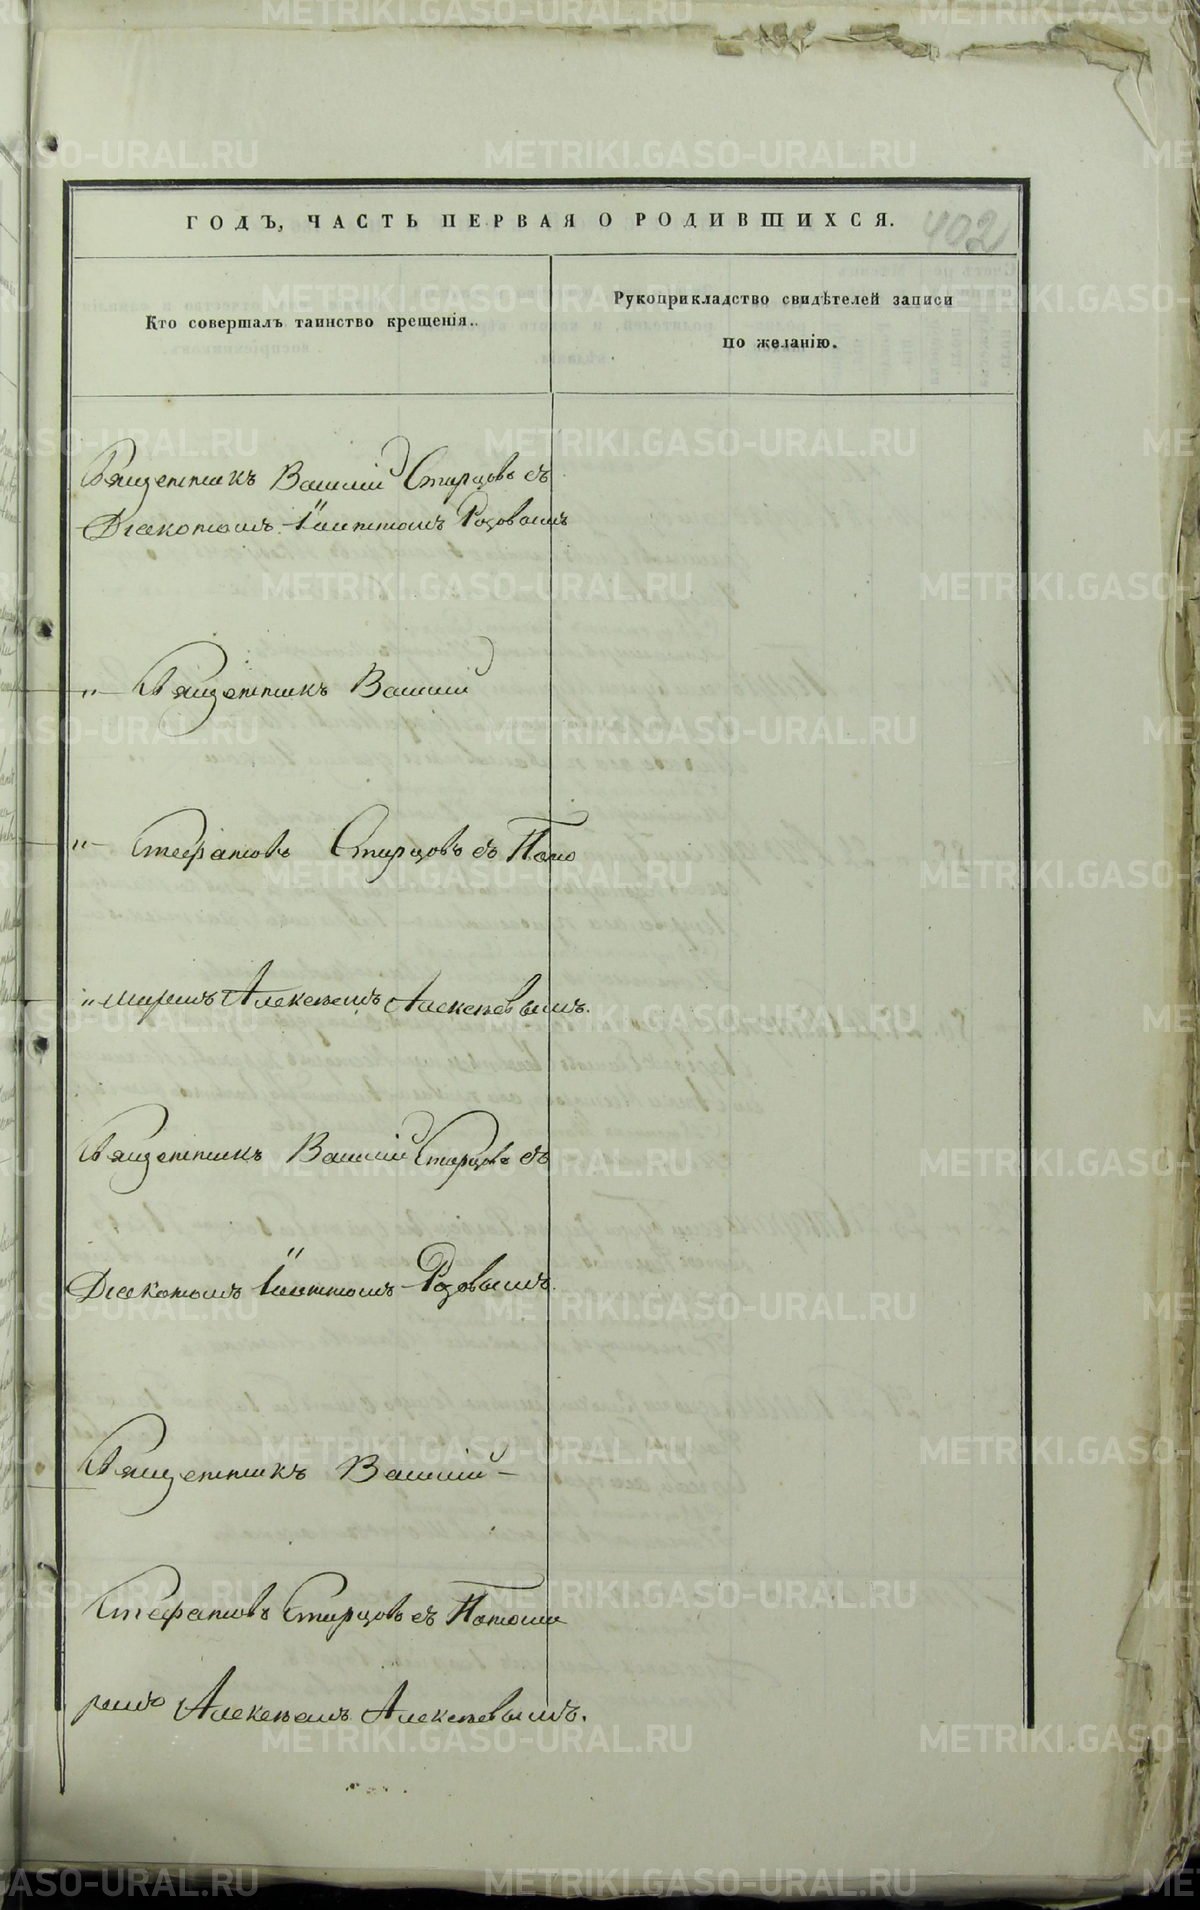 ГОДЪ, ЧАСТЬ ПЕРВАЯ О РОДИВШИХСЯ.
402
Кто совершалъ таинство крещенія.
Рукоприкладство свидѣтелей записи
по желанію.
Священникъ Василій Старцовъ съ
Діакономъ Іоанномъ
" Священникъ Василій
" Стефановъ Старцовъ съ Поно
" маремъ Алексѣемъ Алексѣевымъ.
Священникъ Василій Старцовъ съ
Діакономъ Іоанномъ
Священникъ Василій –
Стефановъ Старцовъ съ Понома
ремъ Алексѣемъ Алексѣевымъ.
METRIKI.GASO-URAL.RU